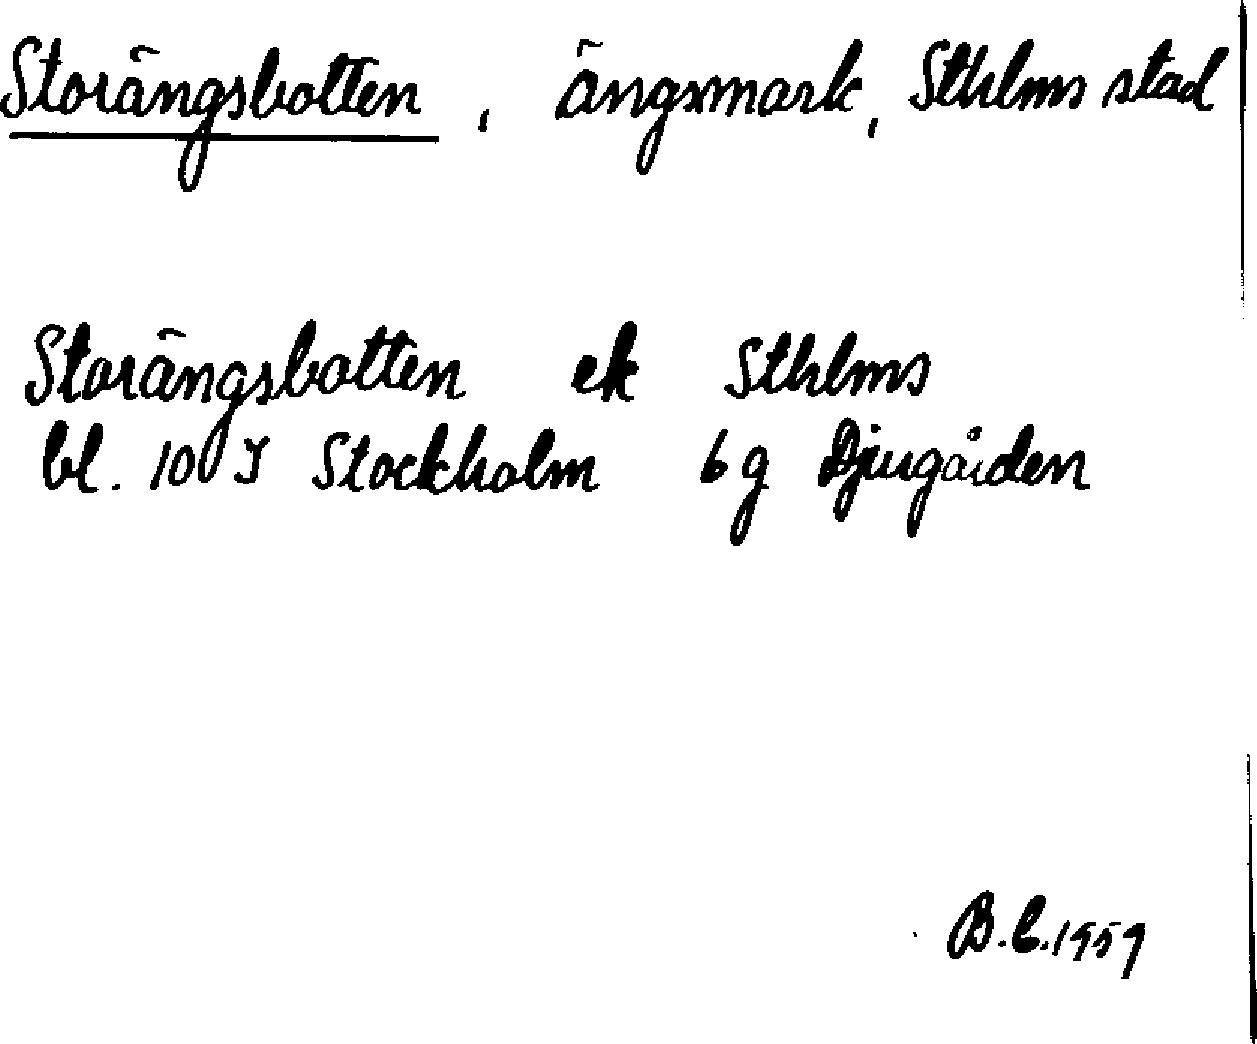 Storängsbotten, ängsmark, Sthlms stad
Storängsbotten ek Sthlms
bl. 10 J Stockholm 6 g Djurgården
B.C. 1959